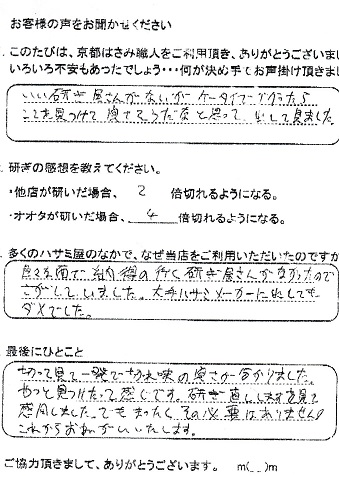 お客様の声をお聞かせください
このたびは、京都はさみ職人をご利用頂き、ありがとうございまし
いろいろ不安もあったでしょう・・・何が決め手でお声掛け頂きま
いい研ぎ屋さんがないかケータイで
ここを見つけて 良さそうだなと思って、出して見ました。
研ぎの感想を教えてください。
・他店が研いだ場合、 2 倍切れるようになる。
・オオタが研いだ場合、 4 倍切れるようになる。
多くのハサミ屋のなかで、なぜ当店をご利用いただいたのですか
色々な面で、納得の行く研ぎ屋さんがなかったので
さがしていました。大手ハサミメーカーに出しても
ダメでした。
最後にひとこと
切って見て一発で切れ味の良さが分かりました。
やっと見つけたって感じです。研ぎ直ししますを見て
感動しました。でもまったくその必要はありません!
これからもおねがいいたします。
ご協力頂きまして、ありがとうございます。 m(__)m